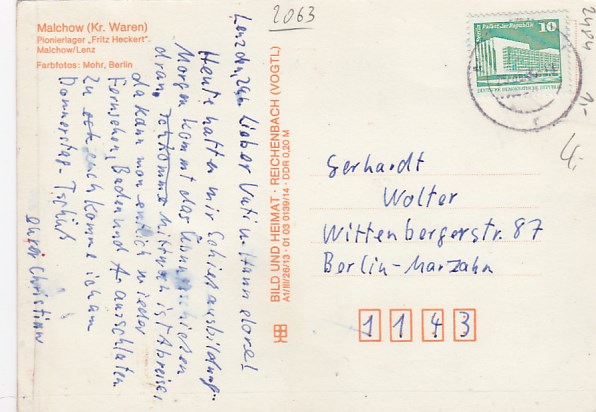 Malchow (Kr. Waren)
Pionierlager „Fritz Heckert“.
Malchow/Lenz
Farbfotos: Mohr, Berlin
2063
2484
1,-
4,-
10
Lenz, den Lieber Vati u. Hannelore!
Heute hatten wir Schießausbildung.
Morgen kommt das schießen
dran. Mittwoch ist Abreise
da kann man endlich wieder
Fernsehn, Baden und Ausschlafen
Zu euch komme ich am
Donnerstag. Tschüß
euer Christian
BILD UND HEIMAT · REICHENBACH (VOGTL)
A1/III/26/13 · 01 03 0139/14 · DDR 0,20 M
Gerhardt
Wolter
Wittenbergerstr. 87
Berlin-Marzahn
1143